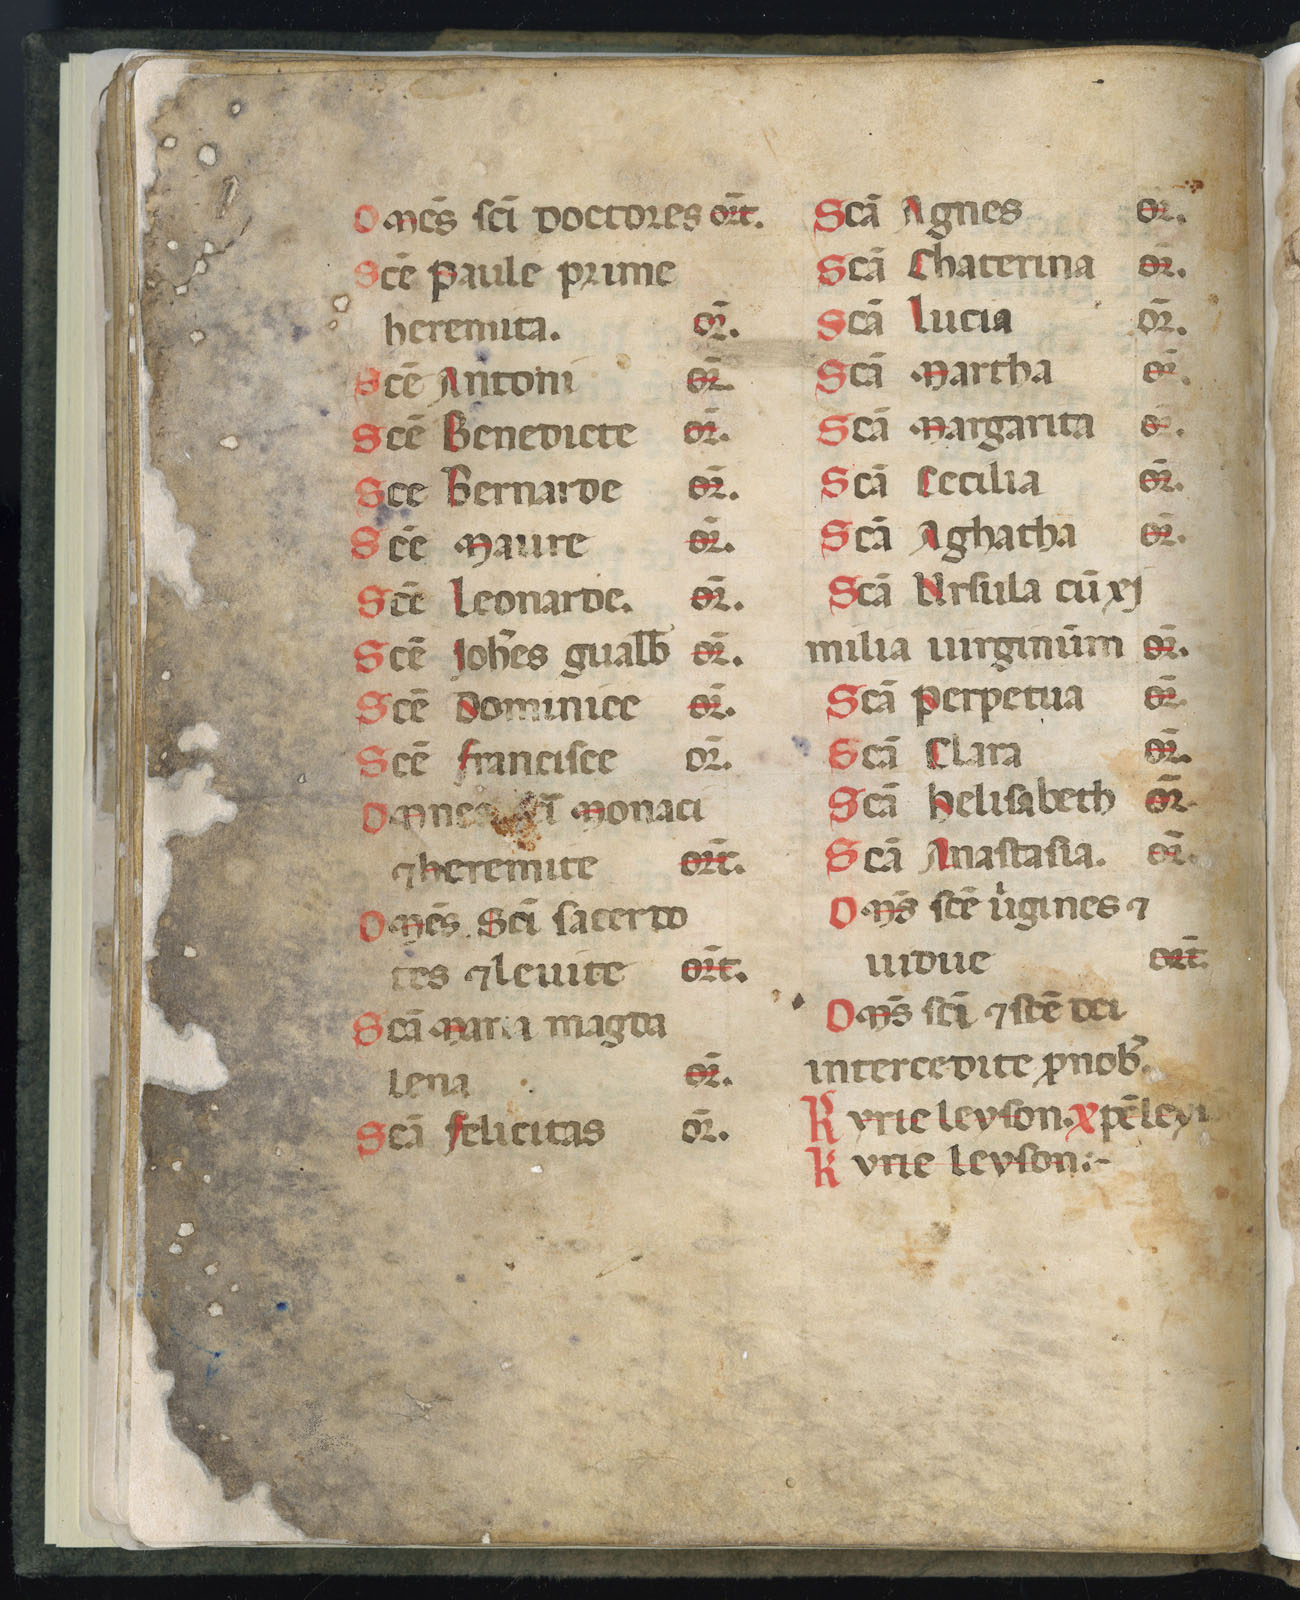 Om̅es sc̅i doctores or̅t.
Sc̅e Paule prime
heremita. or̅.
Sc̅e Antoni or̅.
Sc̅e Benedicte or̅.
Sce Bernarde or̅.
Sc̅e Maure or̅.
Sc̅e Leonarde. or̅.
Sc̅e Joh̅es gualb̅ or̅.
Sc̅e Dominice or̅.
Sc̅e francisce or̅.
Omnes sc̅i Monaci
⁊ heremite or̅t.
Om̅es. Sc̅i sacerdo
tes ⁊ leuite or̅t.
Sc̅a Maria magda
lena or̅.
Sc̅a felicitas or̅.
Sc̅a Agnes or̅.
Sc̅a Chaterina or̅.
Sc̅a Lucia or̅.
Sc̅a Martha or̅.
Sc̅a Margarita or̅.
Sc̅a Cecilia or̅.
Sc̅a Aghatha or̅.
Sc̅a Ursula cu̅ xj
milia uirginu̅m or̅.
Sc̅a Perpetua or̅.
Sc̅a Clara or̅.
Sc̅a helisabeth or̅.
Sc̅a Anastasia. or̅.
Om̅s sc̅e uigines ⁊
uidue or̅t.
Om̅s sc̅i ⁊ sc̅e dei
intercedite ꝓ nob̅.
Kyrie leyson. xp̅e leyi
Kyrie leyson:-